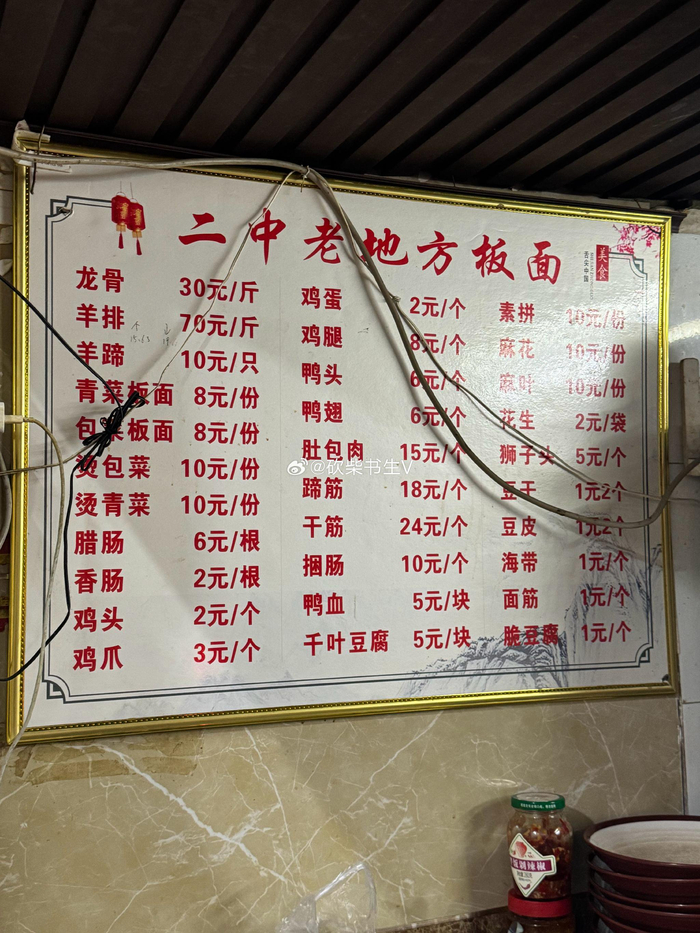 二中老地方板面
美食
舌尖中国
龙骨 30元/斤
羊排 70元/斤
羊蹄 10元/只
青菜板面 8元/份
包菜板面 8元/份
烫包菜 10元/份
烫青菜 10元/份
腊肠 6元/根
香肠 2元/根
鸡头 2元/个
鸡爪 3元/个
鸡蛋 2元/个
鸡腿 8元/个
鸭头 6元/个
鸭翅 6元/个
肚包肉 15元/个
蹄筋 18元/个
干筋 24元/个
捆肠 10元/个
鸭血 5元/块
千叶豆腐 5元/块
素拼 10元/份
麻花 10元/份
麻叶 10元/份
花生 2元/袋
狮子头 5元/个
豆干 1元2个
豆皮 1元2个
海带 1元/个
面筋 1元/个
脆豆腐 1元/个
@砍柴书生V
剁辣椒